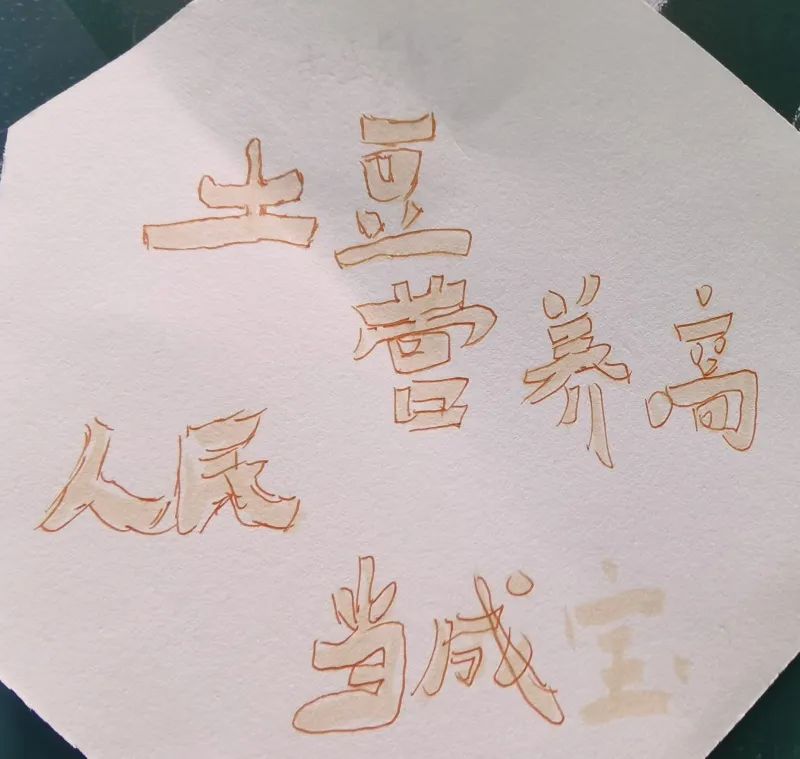 土豆
营养高
人民
当成宝